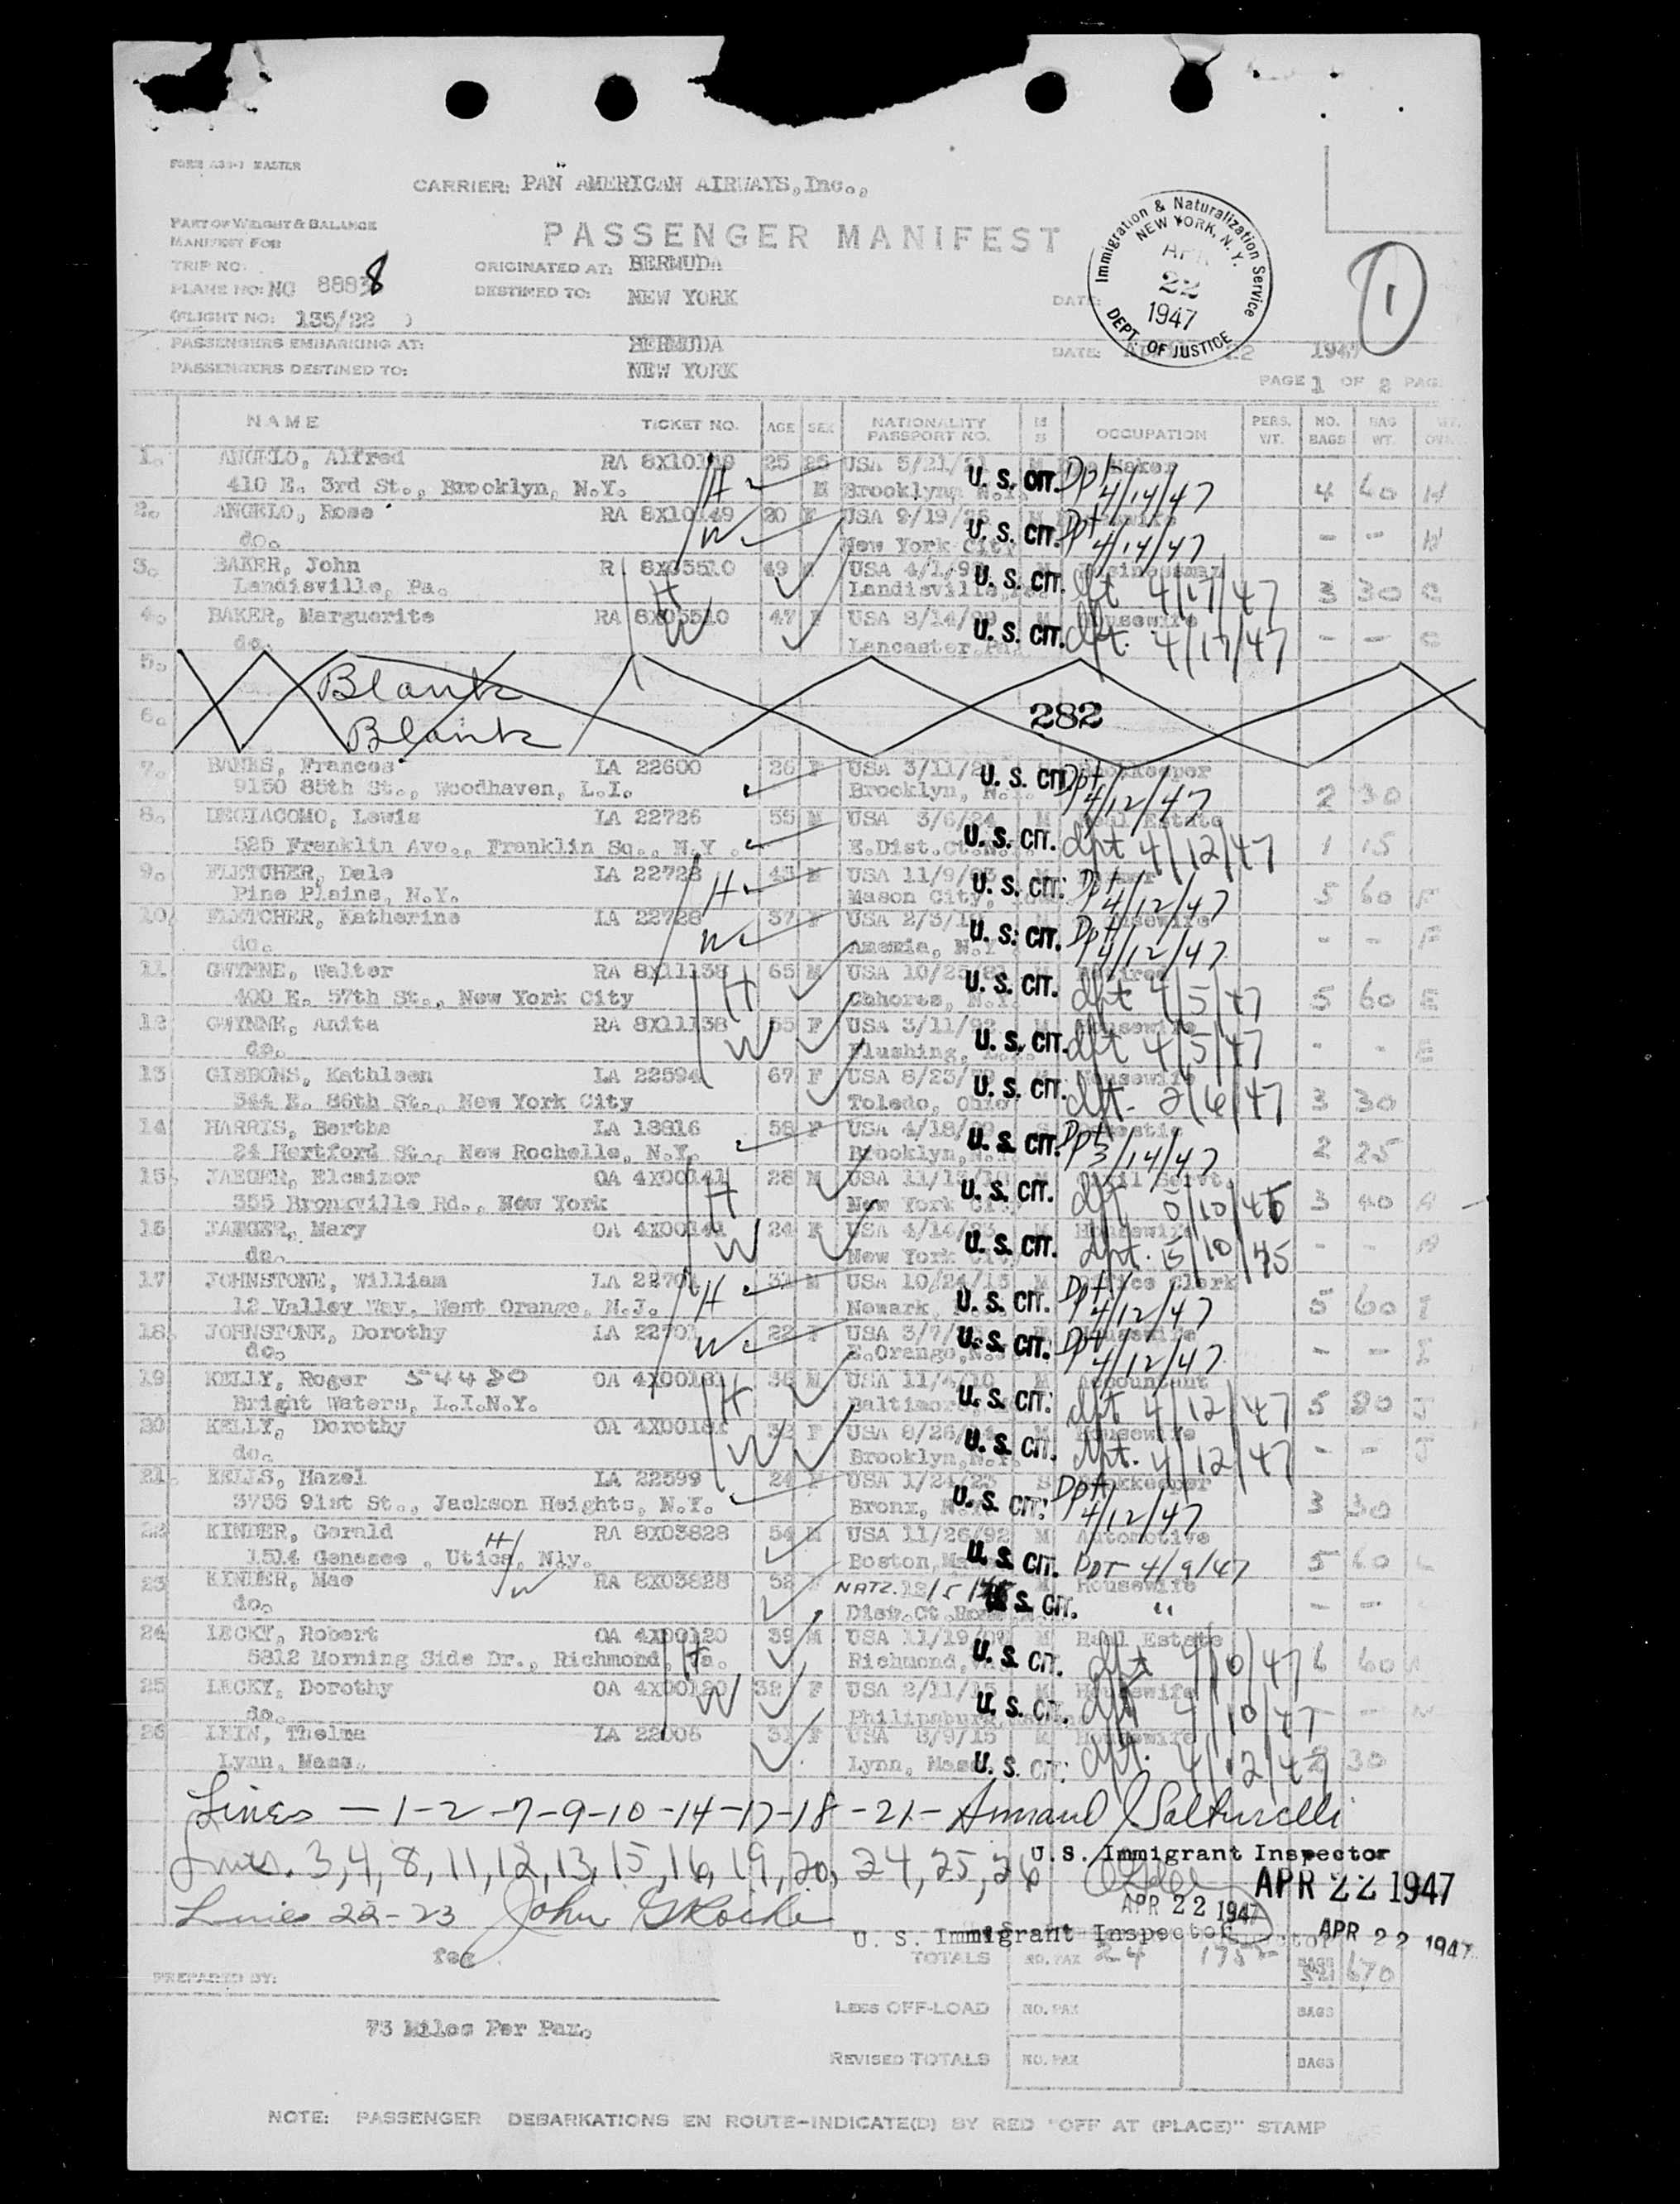 FORM A39-1 MASTER
CARRIER: PAN AMERICAN AIRWAYS, Inc.,
PART OF WEIGHT & BALANCE
MANIFEST FOR
PASSENGER MANIFEST
Immigration & Naturalization Service
NEW YORK, N.Y.
APR
22
1947
DEPT. OF JUSTICE
1
TRIP NO.
ORIGINATED AT: BERMUDA
PLANE NO: NC 88838
DESTINED TO: NEW YORK
DATE:
(FLIGHT NO: 135/22 )
PASSENGERS EMBARKING AT: BERMUDA
DATE: 22 1947
PASSENGERS DESTINED TO: NEW YORK
PAGE 1 OF 2 PAG.
NAME TICKET NO. AGE SEX NATIONALITY PASSPORT NO. M S OCCUPATION PERS. WT. NO. BAGS BAG WT.
1. ANGELO, Alfred RA 8X10149 25 USA 5/21/21 M Maker
410 E. 3rd St., Brooklyn, N.Y. H M Brooklyn, N.Y. U. S. CIT. Dpt 4/14/47 4 60 H
2. ANGELO, Rose RA 8X10149 20 F USA 9/19/26 M
do. W New York City U. S. CIT. Dpt 4/14/47 - -- H
3. BAKER, John R 8X05510 49 USA 4/1/9 Businessman
Landisville, Pa. H Landisville U. S. CIT. dpt 4/17/47 3 30 C
4. BAKER, Marguerite RA 8X05510 47 F USA 8/14/99 M Housewife
do. W Lancaster Pa. U. S. CIT. dpt. 4/17/47 - -- C
5. Blank
6. Blank 282
7. BANKS, Frances IA 22600 26 F USA 3/11/2 Bookkeeper
9150 85th St., Woodhaven, L.I. Brooklyn, N.Y. U. S. CIT. Dpt 4/12/47 2 30
8. DEGIACOMO, Lewis IA 22726 55 M USA 3/6/24 M Real Estate
525 Franklin Ave., Franklin Sq., N.Y. E.Dist.Ct.N. U. S. CIT. dpt 4/12/47 1 15
9. FLETCHER, Dale IA 22728 43 M USA 11/9/03
Pine Plains, N.Y. H Mason City, U. S. CIT. Dpt 4/12/47 5 60 F
10. FLETCHER, Katherine IA 22728 37 F USA 2/3/10 Housewife
do. W Amenia, N.Y. U. S. CIT. Dpt 4/12/47 - - F
11 GWYNNE, Walter RA 8X11138 65 M USA 10/25/81 Retired
400 E. 57th St., New York City H Cohoes, N.Y. U. S. CIT. dpt 4/5/47 5 60 E
12 GWYNNE, Anita RA 8X11138 55 F USA 3/11/92 M Housewife
do. W Flushing, U. S. CIT. dpt 4/5/47 - - E
13 GIBBONS, Kathleen IA 22594 67 F USA 8/23/79 Housewife
344 E. 86th St., New York City Toledo, Ohio U. S. CIT. dpt. 2/6/47 3 30
14 HARRIS, Bertha IA 18816 58 F USA 4/18/89 S Domestic
24 Hertford St., New Rochelle, N.Y. Brooklyn, N. U. S. CIT. Dpt 3/14/47 2 25
15. JAEGER, Eleainor OA 4X00141 28 M USA 11/13/18 M Civil Servt.
355 Bronxville Rd., New York H New York City U. S. CIT. dpt 5/10/45 3 40 A
16 JAEGER, Mary OA 4X00141 24 F USA 4/14/23 M Housewife
do. W New York City U. S. CIT. dpt. 5/10/45 - - A
17 JOHNSTONE, William IA 22701 31 M USA 10/24/15 M Office Clerk
12 Valley Way, West Orange, N.J. H Newark, U. S. CIT. Dpt 4/12/47 5 60 I
18. JOHNSTONE, Dorothy IA 22701 22 F USA 3/7/ Housewife
do. W E.Orange, N.J. U. S. CIT. Dpt 4/12/47 - - I
19 KELLY, Roger 54480 OA 4X00181 36 M USA 11/4/10 M Accountant
Bright Waters, L.I.N.Y. H Baltimore U. S. CIT. dpt 4/12/47 5 80 J
20 KELLY, Dorothy OA 4X00181 32 F USA 8/26/14 M Housewife
do. W Brooklyn, N.Y. U. S. CIT. dpt. 4/12/47 - - J
21. EELLS, Hazel IA 22599 24 F USA 1/24/23 S Bookkeeper
3756 91st St., Jackson Heights, N.Y. Bronx, N. U. S. CIT. Dpt 4/12/47 3 30
22 KINDER, Gerald RA 8X03828 54 M USA 11/26/92 M Automotive
1514 Genesee , Utica, NIy. H Boston, Ma U. S. CIT. DPT 4/9/47 5 60 L
23 KINDER, Mae W RA 8X03828 52 NATZ. 12/5/ M Housewife
do. Dist.Ct. Rome U. S. CIT. " - --
24 LECKY, Robert OA 4X00120 39 M USA 11/19/07 M Real Estate
5812 Morning Side Dr., Richmond, Va. H Richmond, Va U. S. CIT. dpt 4/10/47 6 60 N
25 LECKY, Dorothy OA 4X00120 32 F USA 2/11/15 M Housewife
do. W Philipsburg, U. S. CIT. dpt 4/10/47 - N
26 LEIN, Thelma IA 22006 31 F USA 8/9/15 M Housewife
Lynn, Mass. Lynn, Mass U. S. CIT. dpt. 4/12/47 2 30
Lines - 1-2-7-9-10-14-17-18-21-
U.S. Immigrant Inspector
Lines. 3,4,8,11,12,13,15,16,19,20,24,25,26
APR 22 1947
APR 22 1947
Lines 22-23 John G Roche
U. S. Immigrant Inspector APR 22 1947
fee
PREPARED BY:
TOTALS NO. PAX 24 BAGS 670
LESS OFF-LOAD NO. PAX BAGS
73 Miles Per Pax.
REVISED TOTALS NO. PAX BAGS
NOTE: PASSENGER DEBARKATIONS EN ROUTE-INDICATE(D) BY RED "OFF AT (PLACE)" STAMP